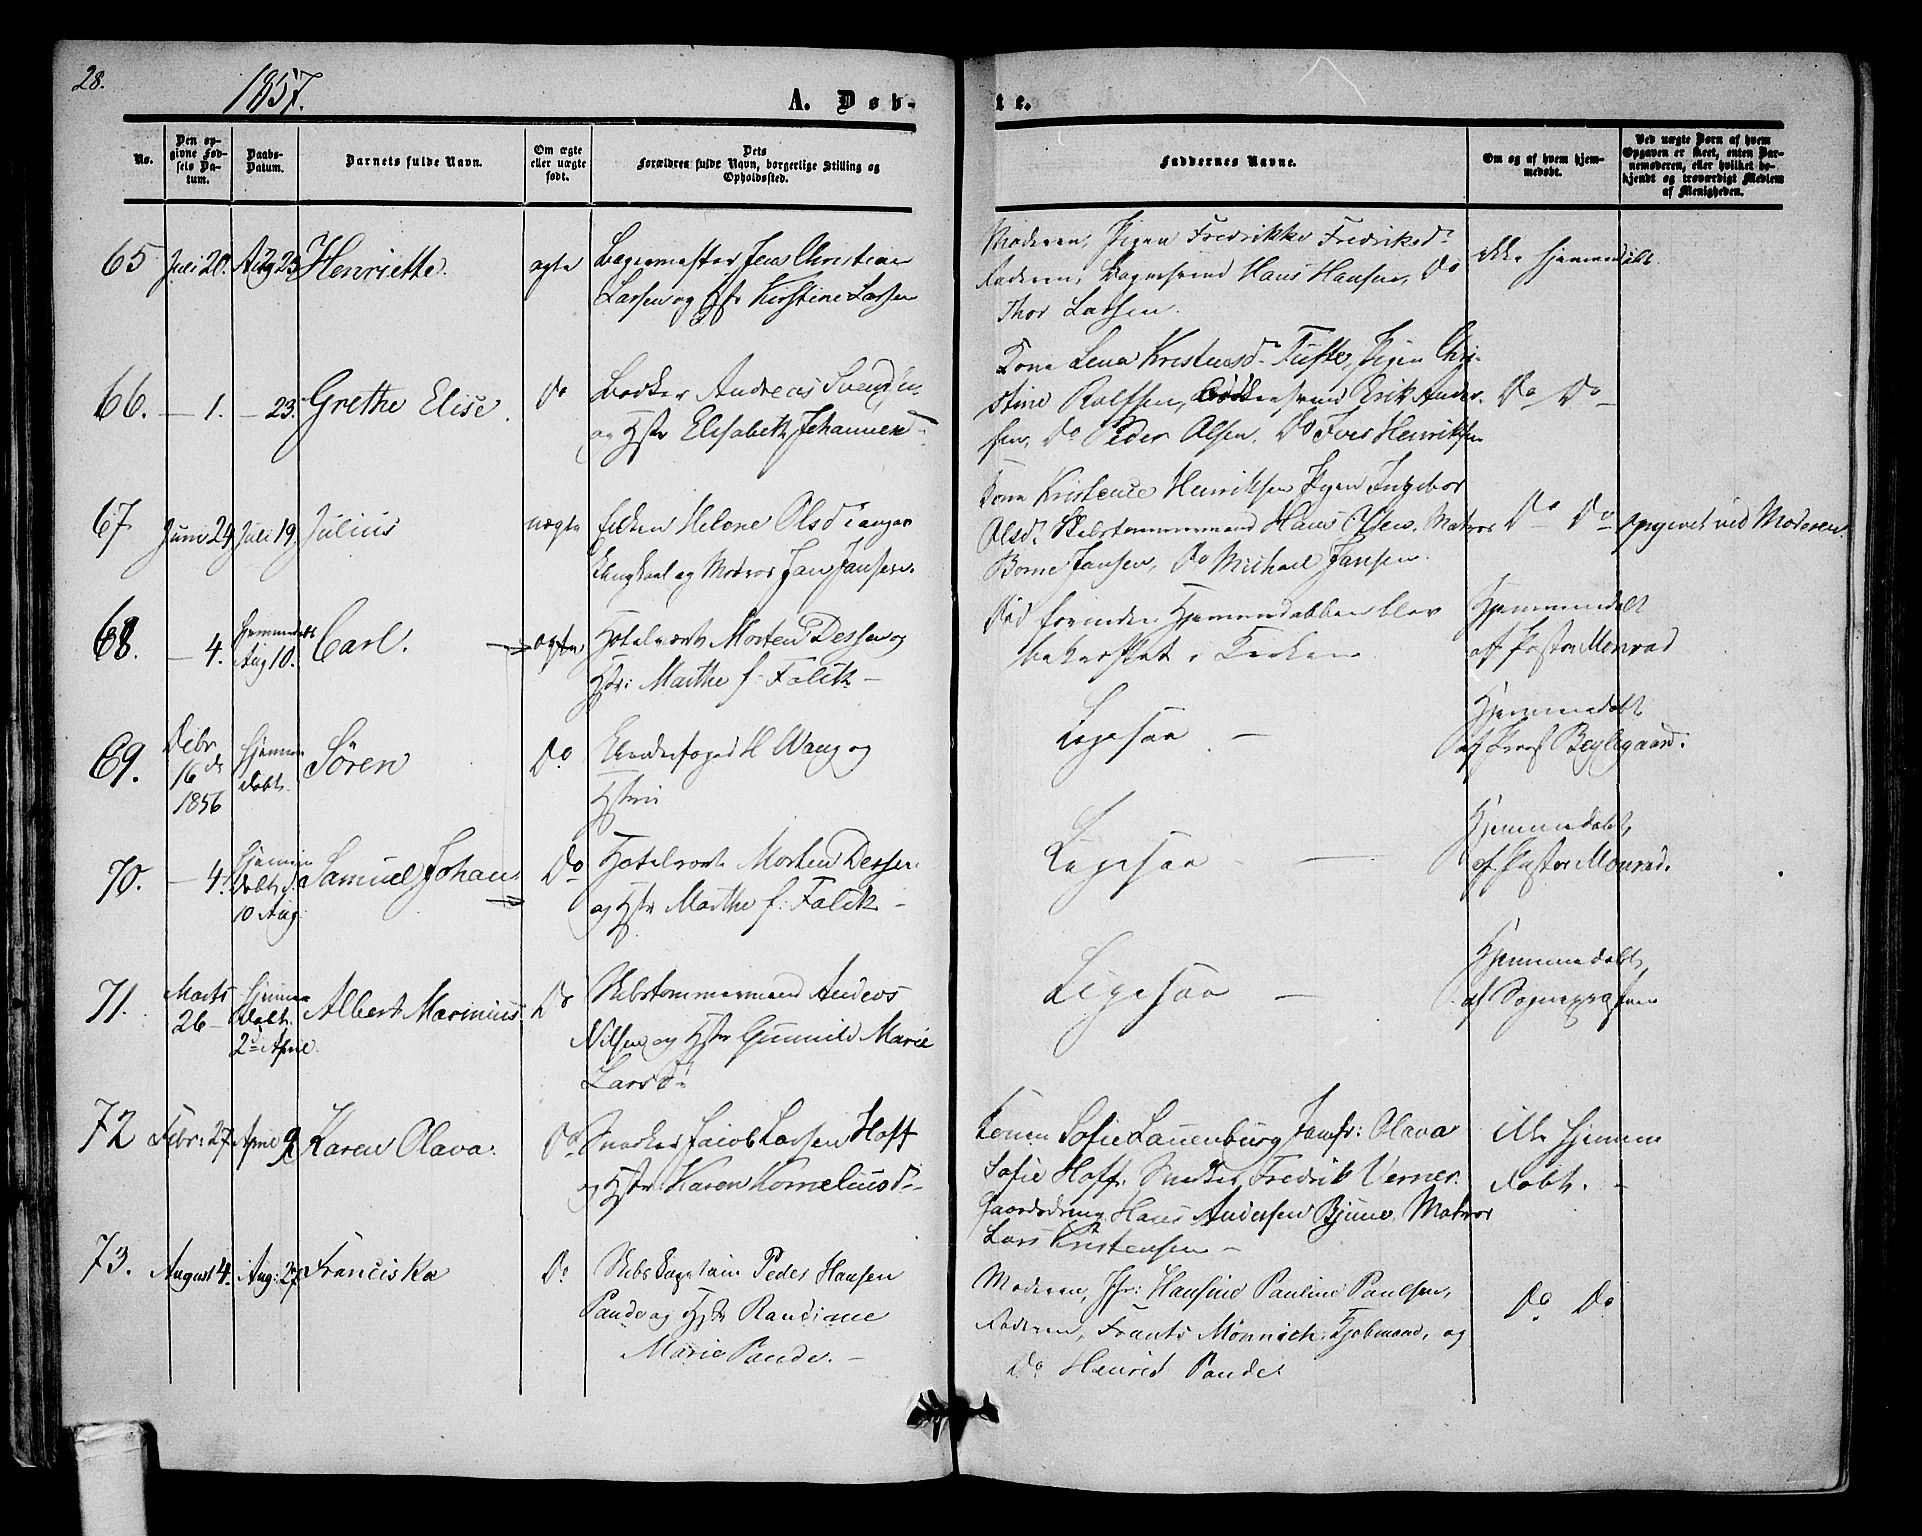 28.
1857.
A. Døb-
te.
No.
Den op-
givne Fød-
sels Da-
tum.
Daabs-
Datum.
Barnets fulde Navn.
Om ægte
eller uægte
født.
Dets
Forældres fulde Navn, borgerlige Stilling og
Opholdssted.
Faddernes Navne.
Om og af hvem hjem-
medøbt.
Ved uægte Børn af hvem
Opgaven er skeet, enten Bar-
nemoderen, eller hvilket be-
kjendt og troværdigt Medlem
af Menigheden.
65 Juli 20. Aug 23. Henriette. ægte Bagermester Jen Christian
Larsen og Hstr Kirstine Larsen
Moderen, Pigen Fredrikke Fredriksd.
Faderen, Bagersvend Hans Hansen, Do
Thor Larsen.
ikke hjemmedøbt.
66. — 1. — 23. Grethe Elise. Do Bødker Andreas Svendsen
og Hstr Elisabeth Johannesd.
Kone Lena Kristensd. Tufte, Pigen Chri-
stine Rolfsen, Bødkersvend Erik Ander-
sen, Do Peder Olsen, Do Iver Henriksen
Do Do —
67. Juni 29 Juli 19 Julius uægte Enken Helene Olsd
og Matros Jan Jansen.
Kone Kristence Henriksen Pigen Ingebor
Olsd. Skibstømmermand Hans Olsen, Matros
Borne Jansen, Do Michael Jansen.
Do Do opgivet ved Moderen.
68. — 4. Hjemmedøbt
Aug 10. Carl. ægte Hotelvært Morten Dessen og
Hstr: Marthe f. Falck —
Død forinden Hjemmedaaben blev
bekræftet i Kirken
Hjemmedøbt
af Pastor Monrad
69. Debr
16 de
1856 Hjemme
døbt. Søren Do H Wang og
Hstru
Ligesaa —
Hjemmedøbt
af Provst Beylegaard.
70. — 4. Hjemme
døbt d.
10 Aug: Samuel Johan Do Hotelvært Morten Dessen
og Hstr Marthe f. Falck —
Ligesaa — —
Hjemmedøbt,
af Pastor Monrad.
71. Marts
26 — Hjemme
døbt.
2de April. Albert Marinius Do Skibstømmermand Anders
Nilsen og Hstr Gunnild Marie
Larsd.
Ligesaa —
Hjemmedøbt,
af Sognepræsten
72 Febr: 27. April 9 Karen Olava. Do. Snedker Jacob Larsen Hoff
og Hstr: Karen Korneliusd. —
Konen Sofie Lauenburg Jomfr: Olava
Sofie Hoff. Snedker Fredrik Verner.
Gaardsdreng Hans Andersen Bjune, Matros
Lars Kristensen —
ikke hjemme
døbt. —
73. August 4. Aug: 27. Franciska Do Skibskaptain Peder Hansen
Pande og Hstr Randine
Marie Pande. —
Moderen, Jfr: Hansine Pauline Paulsen,
Faderen, Frants Mønnich, Kjøbmand, og
Do Henrik Pande
Do Do